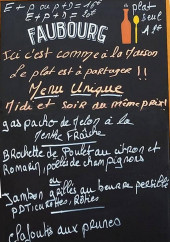 E + P ou P + D = 18€
E + P + D = 20€
plat
seul
FAUBOURG
Ici c'est comme à la maison
le plat est à partager !!
Menu Unique
Midi et Soir au même prix!
gaspacho de melon à la
menthe Fraîche
Brochette de Poulet au citron et
Romarin, poêlée de champignons
ou
Jambon grillés au beurre persillé
PDT
clafoutis aux prunes